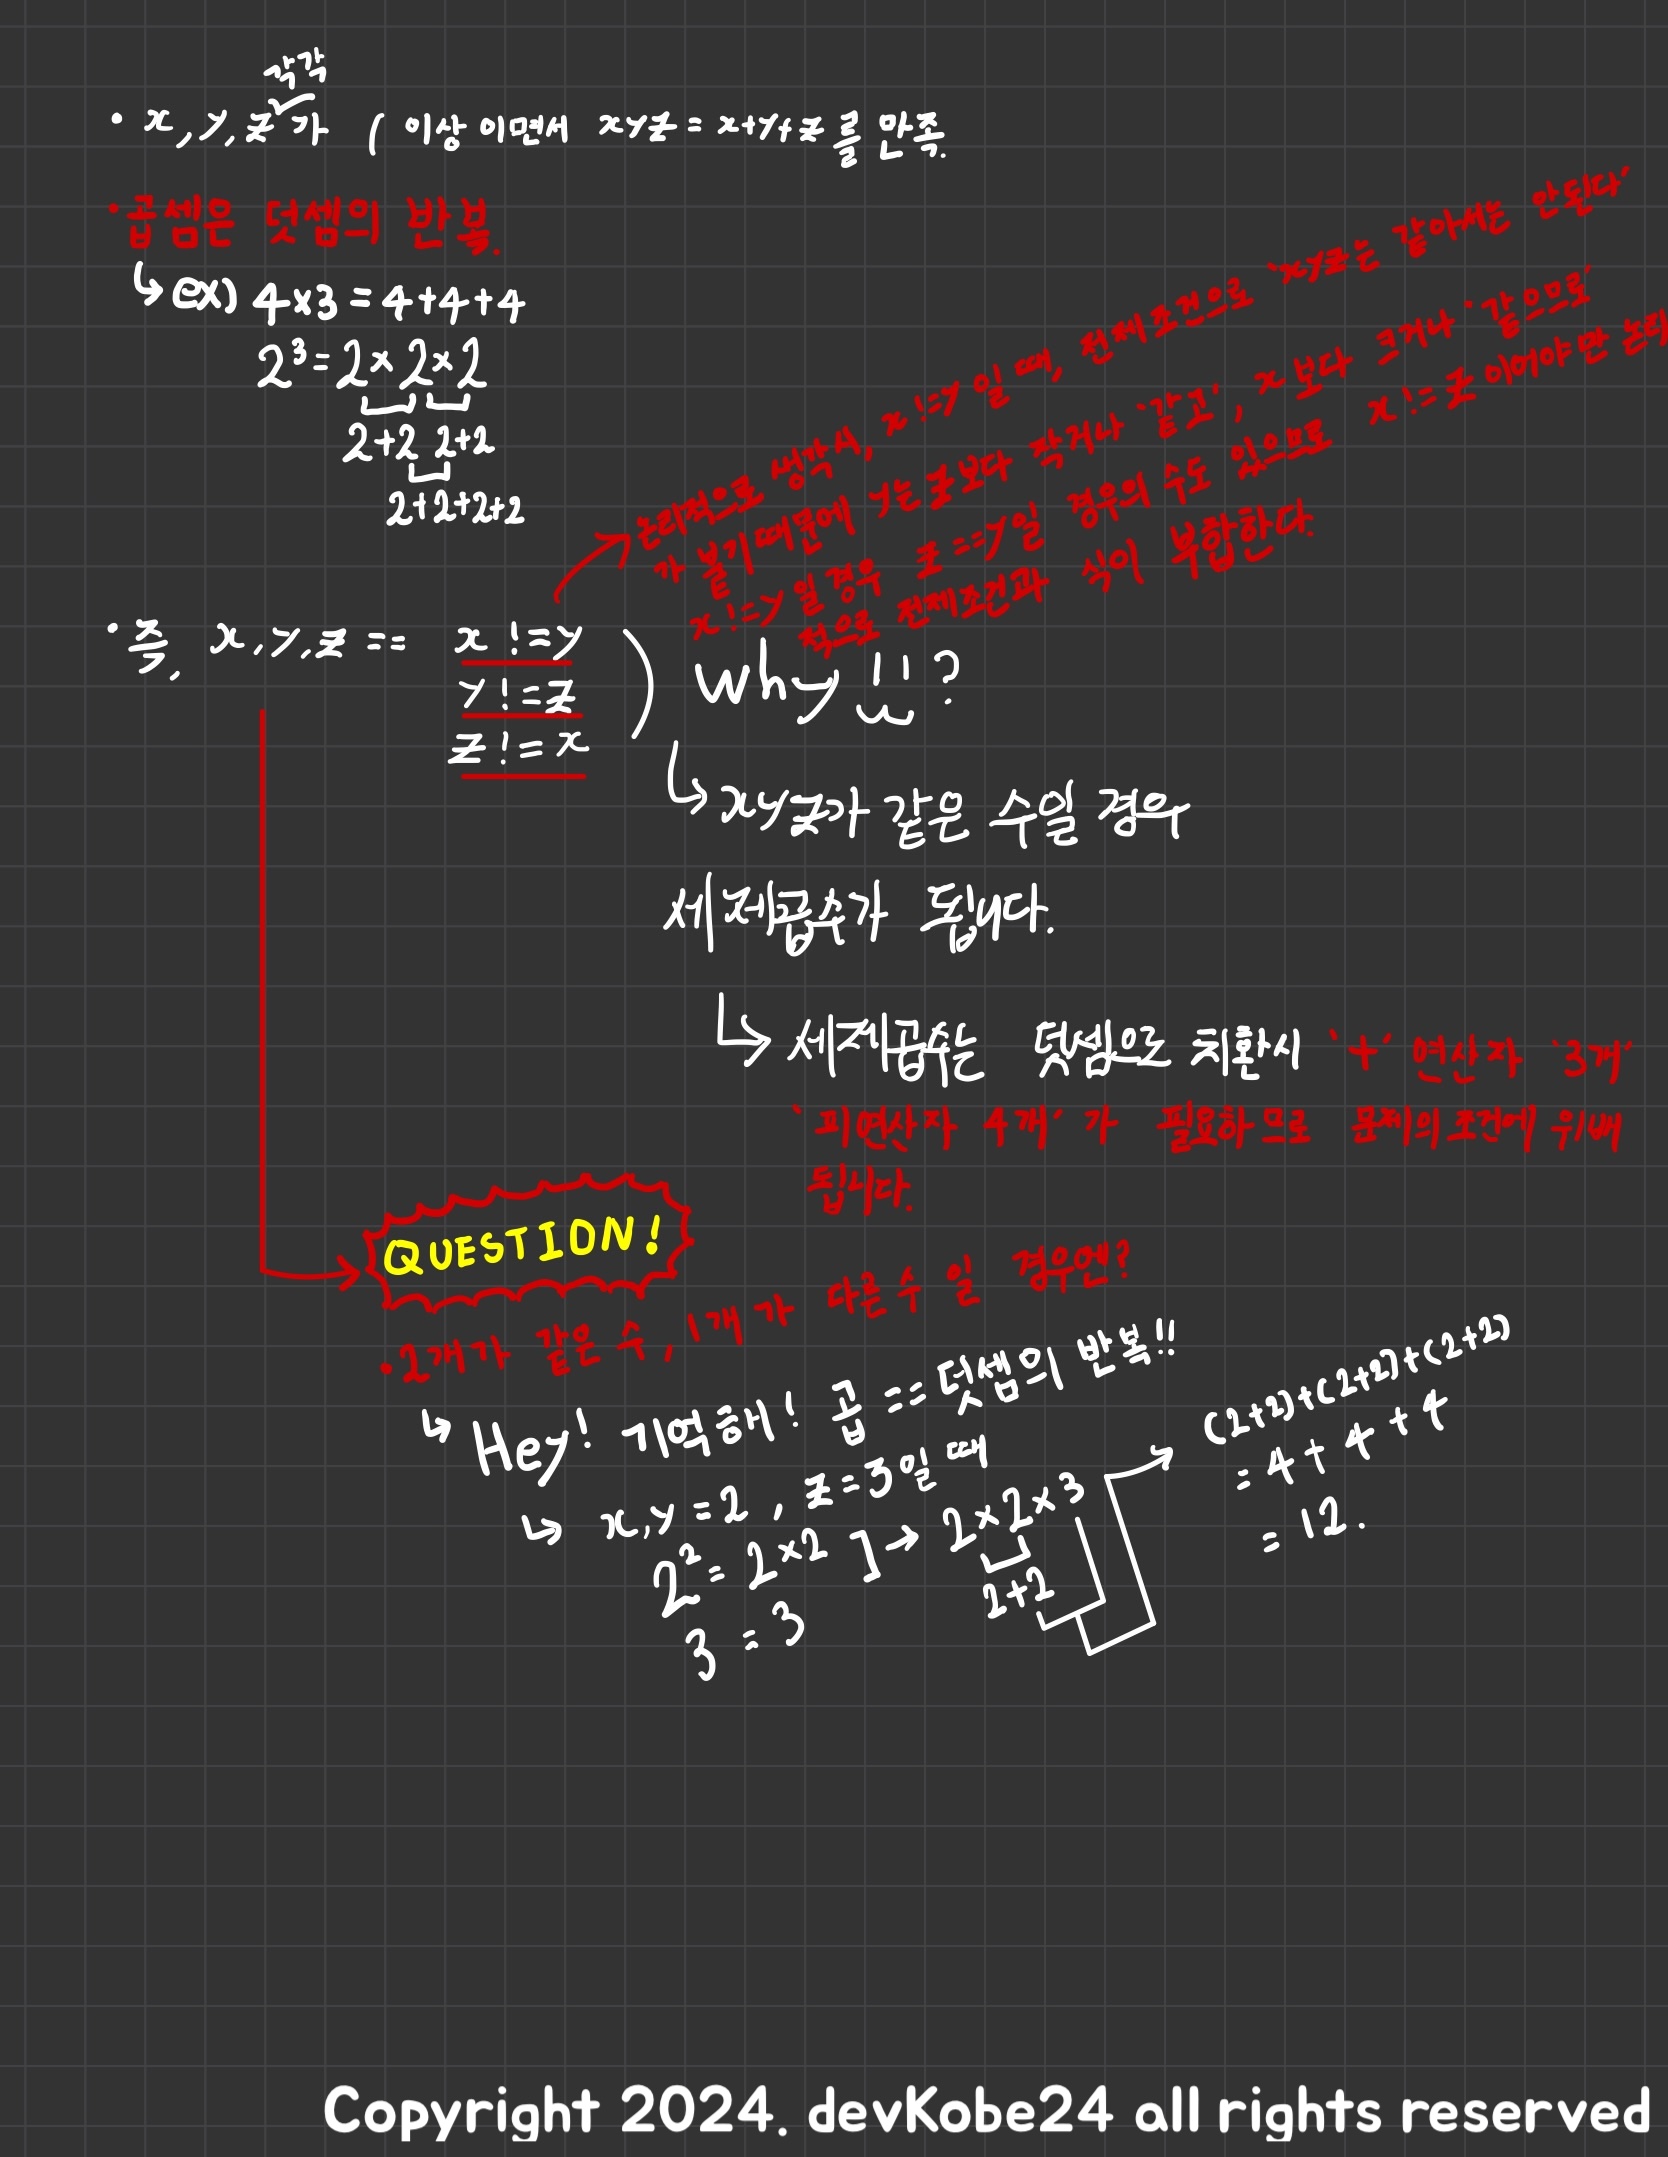 각각
• x, y, z가 ( 이상 이면서 xyz = x+y+z 를 만족.
• 곱셈은 덧셈의 반복.
↳ ex) 4x3 = 4+4+4
2³ = 2 x 2 x 2
2+2 2+2
2+2+2+2
논리적으로 생각시, x !=y 일 때, 전제조건으로 'xyz는 같아서는 안된다'
가 붙기때문에 y는 z보다 작거나 '같고', x 보다 크거나 '같으므로'
x !=y일 경우 z ==y일 경우의 수도 있으므로 x != z 이어야만 논리
적으로 전제조건과 식이 부합한다.
• 즉, x, y, z == x !=y
y !=z
z != x
) Why !! ?
↳ xyz가 같은 수일 경우
세제곱수가 됩니다.
↳ 세제곱수는 덧셈으로 치환시 '+' 연산자 '3개'
'피연산자 4개' 가 필요하므로 문제의 조건에 위배
됩니다.
QUESTION!
• 2개가 같은 수, 1개가 다른수 일 경우엔?
↳ Hey! 기억해! 곱 == 덧셈의 반복!!
↳ x, y = 2 , z = 3일 때
2² = 2 x 2 ] → 2 x 2 x 3
3 = 3
2+2
(2+2)+(2+2)+(2+2)
= 4 + 4 + 4
= 12.
Copyright 2024. devKobe24 all rights reserved